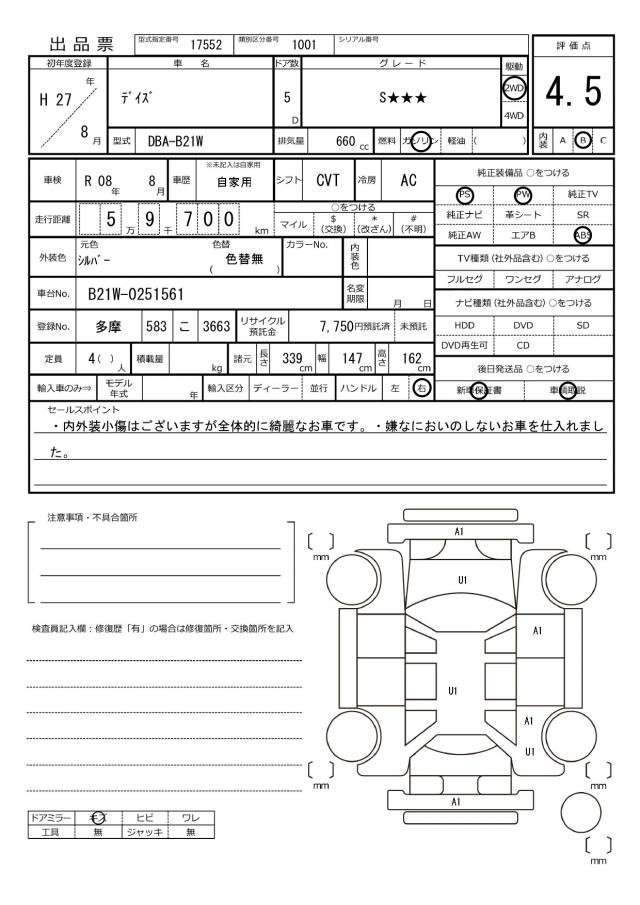 出品票 型式指定番号 17552 類別区分番号 1001 シリアル番号
評価点
初年度登録 車名 ドア数 グレード 駆動
H 27 年 8 月 デイズ 5 D S★★★ 2WD 4WD 4.5
型式 DBA-B21W 排気量 660 cc 燃料 ガソリン 軽油 ( ) 内装 A B C
車検 R 08 年 8 月 車歴 ※未記入は自家用 自家用 シフト CVT 冷房 AC
純正装備品 ○をつける
PS PW 純正TV
純正ナビ 革シート SR
純正AW エアB ABS
走行距離 5 万 9 千 7 0 0 km
○をつける
マイル $ (交換) * (改ざん) # (不明)
外装色 元色 シルバー 色替 ( 色替無 ) カラーNo. 内装色
TV種類 (社外品含む) ○をつける
フルセグ ワンセグ アナログ
車台No. B21W-0251561 名変期限 月 日
ナビ種類 (社外品含む) ○をつける
HDD DVD SD
DVD再生可 CD
登録No. 多摩 583 こ 3663 リサイクル預託金 7,750円預託済 未預託
定員 4 ( ) 人 積載量 kg 諸元 長さ 339 cm 幅 147 cm 高さ 162 cm
後日発送品 ○をつける
新車保証書 車輌取説
輸入車のみ⇒ モデル年式 年 輸入区分 ディーラー 並行 ハンドル 左 右
セールスポイント
・内外装小傷はございますが全体的に綺麗なお車です。・嫌なにおいのしないお車を仕入れまし
た。
注意事項・不具合箇所
検査員記入欄：修復歴「有」の場合は修復箇所・交換箇所を記入
ドアミラー キズ ヒビ ワレ
工具 無 ジャッキ 無
A1
mm mm
U1
A1
U1
A1
U1
mm mm
A1
mm